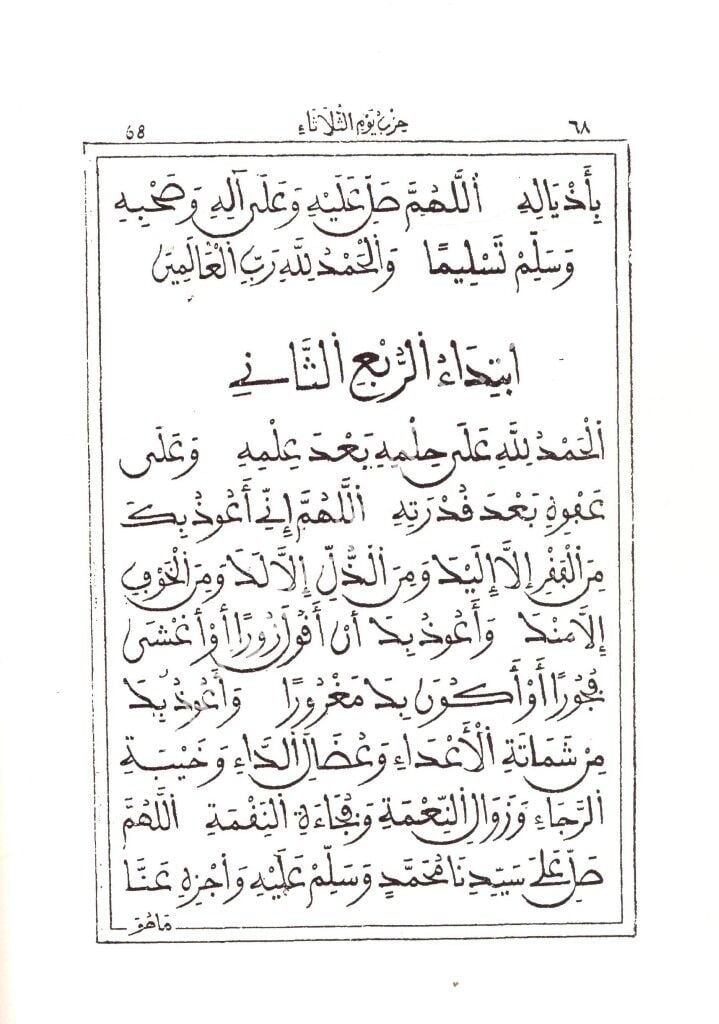 ٦٨ حِزْبُ يَوْمِ الثُّلَاثَاءِ 68
بِأَذْيَالِهِ اَللَّهُمَّ صَلِّ عَلَيْهِ وَعَلَى آلِهِ وَصَحْبِهِ
وَسَلِّمْ تَسْلِيمًا وَالْحَمْدُ لِلَّهِ رَبِّ الْعَالَمِينَ
ابْتِدَاءُ الرُّبُعِ الثَّانِي
اَلْحَمْدُ لِلَّهِ عَلَى حِلْمِهِ بَعْدَ عِلْمِهِ وَعَلَى
عَفْوِهِ بَعْدَ قُدْرَتِهِ اَللَّهُمَّ إِنِّي أَعُوذُ بِكَ
مِنَ الْفَقْرِ إِلَّا إِلَيْكَ وَمِنَ الذُّلِّ إِلَّا لَكَ وَمِنَ الْخَوْفِ
إِلَّا مِنْكَ وَأَعُوذُ بِكَ أَنْ أَقُولَ زُورًا أَوْ أَغْشَى
فُجُورًا أَوْ أَكُونَ بِكَ مَغْرُورًا وَأَعُوذُ بِكَ
مِنْ شَمَاتَةِ الْأَعْدَاءِ وَعُضَالِ الدَّاءِ وَخَيْبَةِ
الرَّجَاءِ وَزَوَالِ النِّعْمَةِ وَفُجَاءَةِ النِّقْمَةِ اَللَّهُمَّ
صَلِّ عَلَى سَيِّدِنَا مُحَمَّدٍ وَسَلِّمْ عَلَيْهِ وَاجْزِهِ عَنَّا
مَا هُوَ